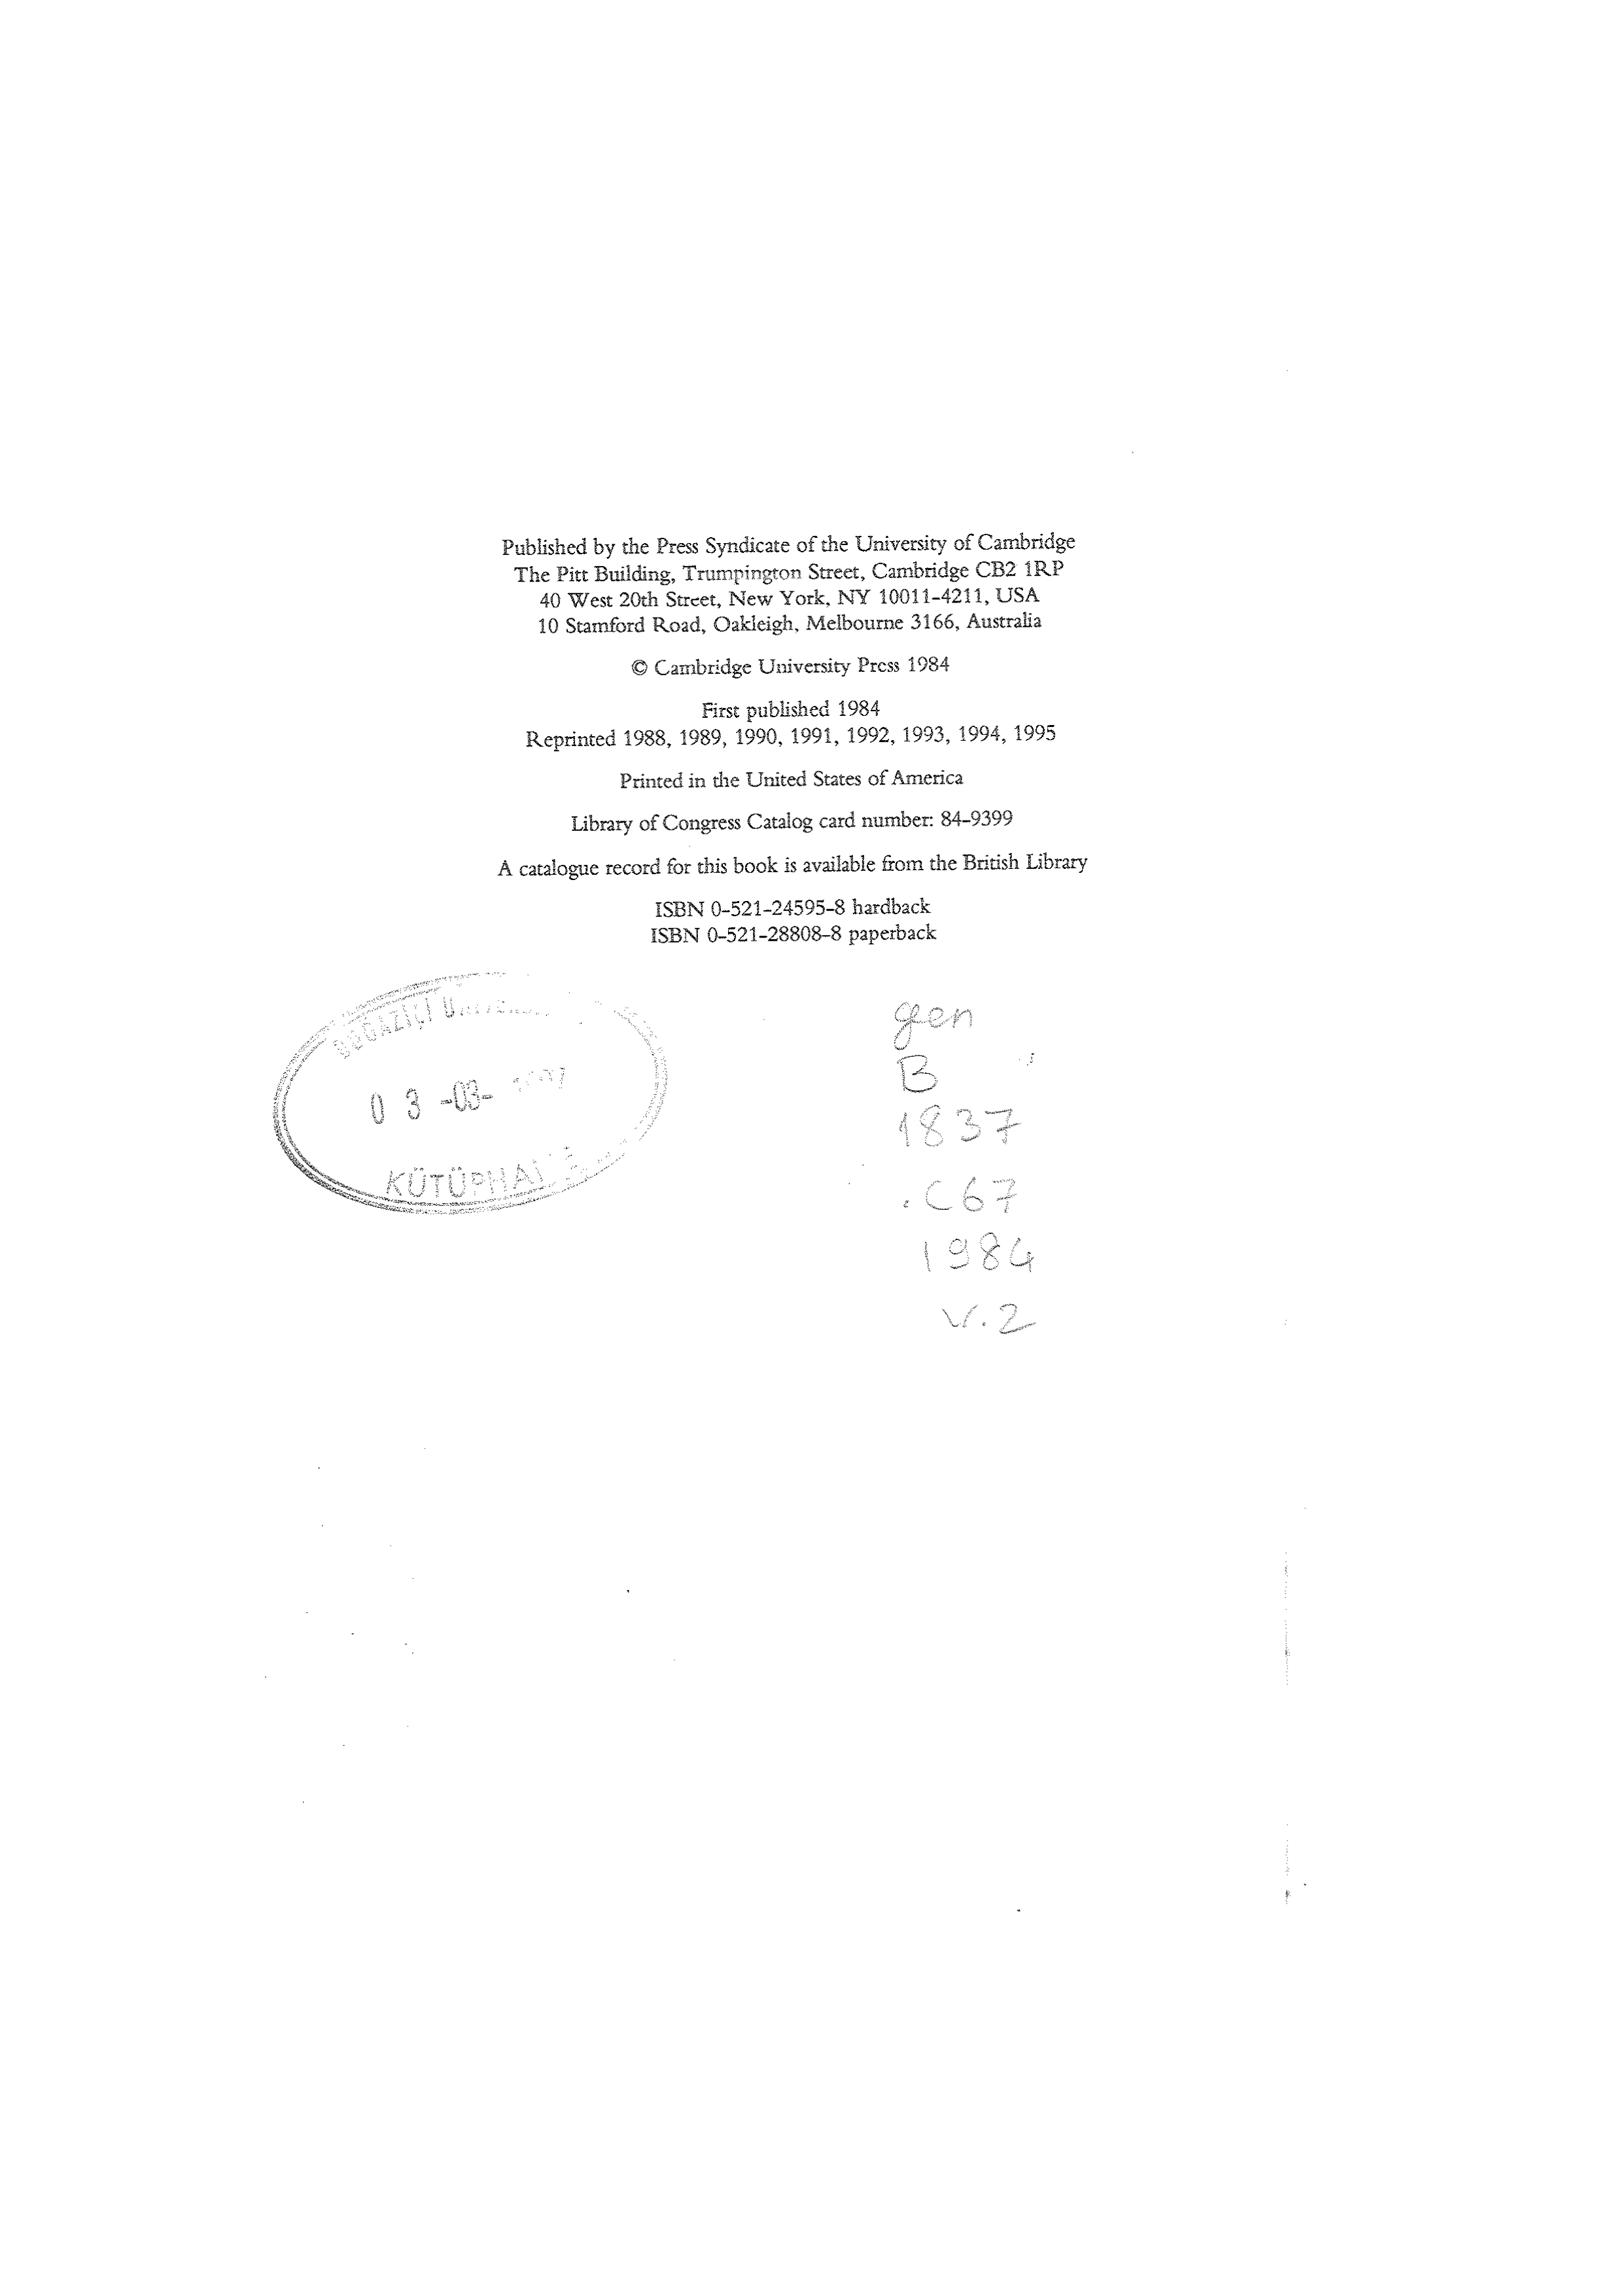 Published by the Press Syndicate of the University of Cambridge
The Pitt Building, Trumpington Street, Cambridge CB2 1RP
40 West 20th Street, New York, NY 10011-4211, USA
10 Stamford Road, Oakleigh, Melbourne 3166, Australia
© Cambridge University Press 1984
First published 1984
Reprinted 1988, 1989, 1990, 1991, 1992, 1993, 1994, 1995
Printed in the United States of America
Library of Congress Catalog card number: 84-9399
A catalogue record for this book is available from the British Library
ISBN 0-521-24595-8 hardback
ISBN 0-521-28808-8 paperback
BOĞAZİÇİ
03-03-
gen
B
1837
.C67
1984
v.2